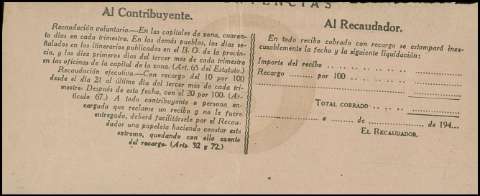 ENCIAS
Al Contribuyente.
Recaudación voluntaria.—En las capitales de zona, cuaren-
ta días en cada trimestre. En los demás pueblos, los días se-
ñalados en los itinerarios publicados en el B. O. de la provin-
cia, y los diez primeros días del tercer mes de cada trimestre
en las oficinas de la capital de la zona. (Art. 65 del Estatuto.)
Recaudación ejecutiva.—Con recargo del 10 por 100
desde el 21 al último día del tercer mes de cada tri-
mestre. Después de esta fecha, con el 20 por 100. (Ar-
tículo 67.) A todo contribuyente o persona en-
cargada que reclame un recibo y no le fuere
entregado, deberá facilitársele por el Recau-
dador una papeleta haciendo constar este
extremo, quedando con ello exento
del recargo. (Arts. 52 y 72.)
Al Recaudador.
En todo recibo cobrado con recargo se estampará inex-
cusablemente la fecha y la siguiente liquidación:
Importe del recibo
Recargo ........ por 100
TOTAL COBRADO
a de de 194...
EL RECAUDADOR,